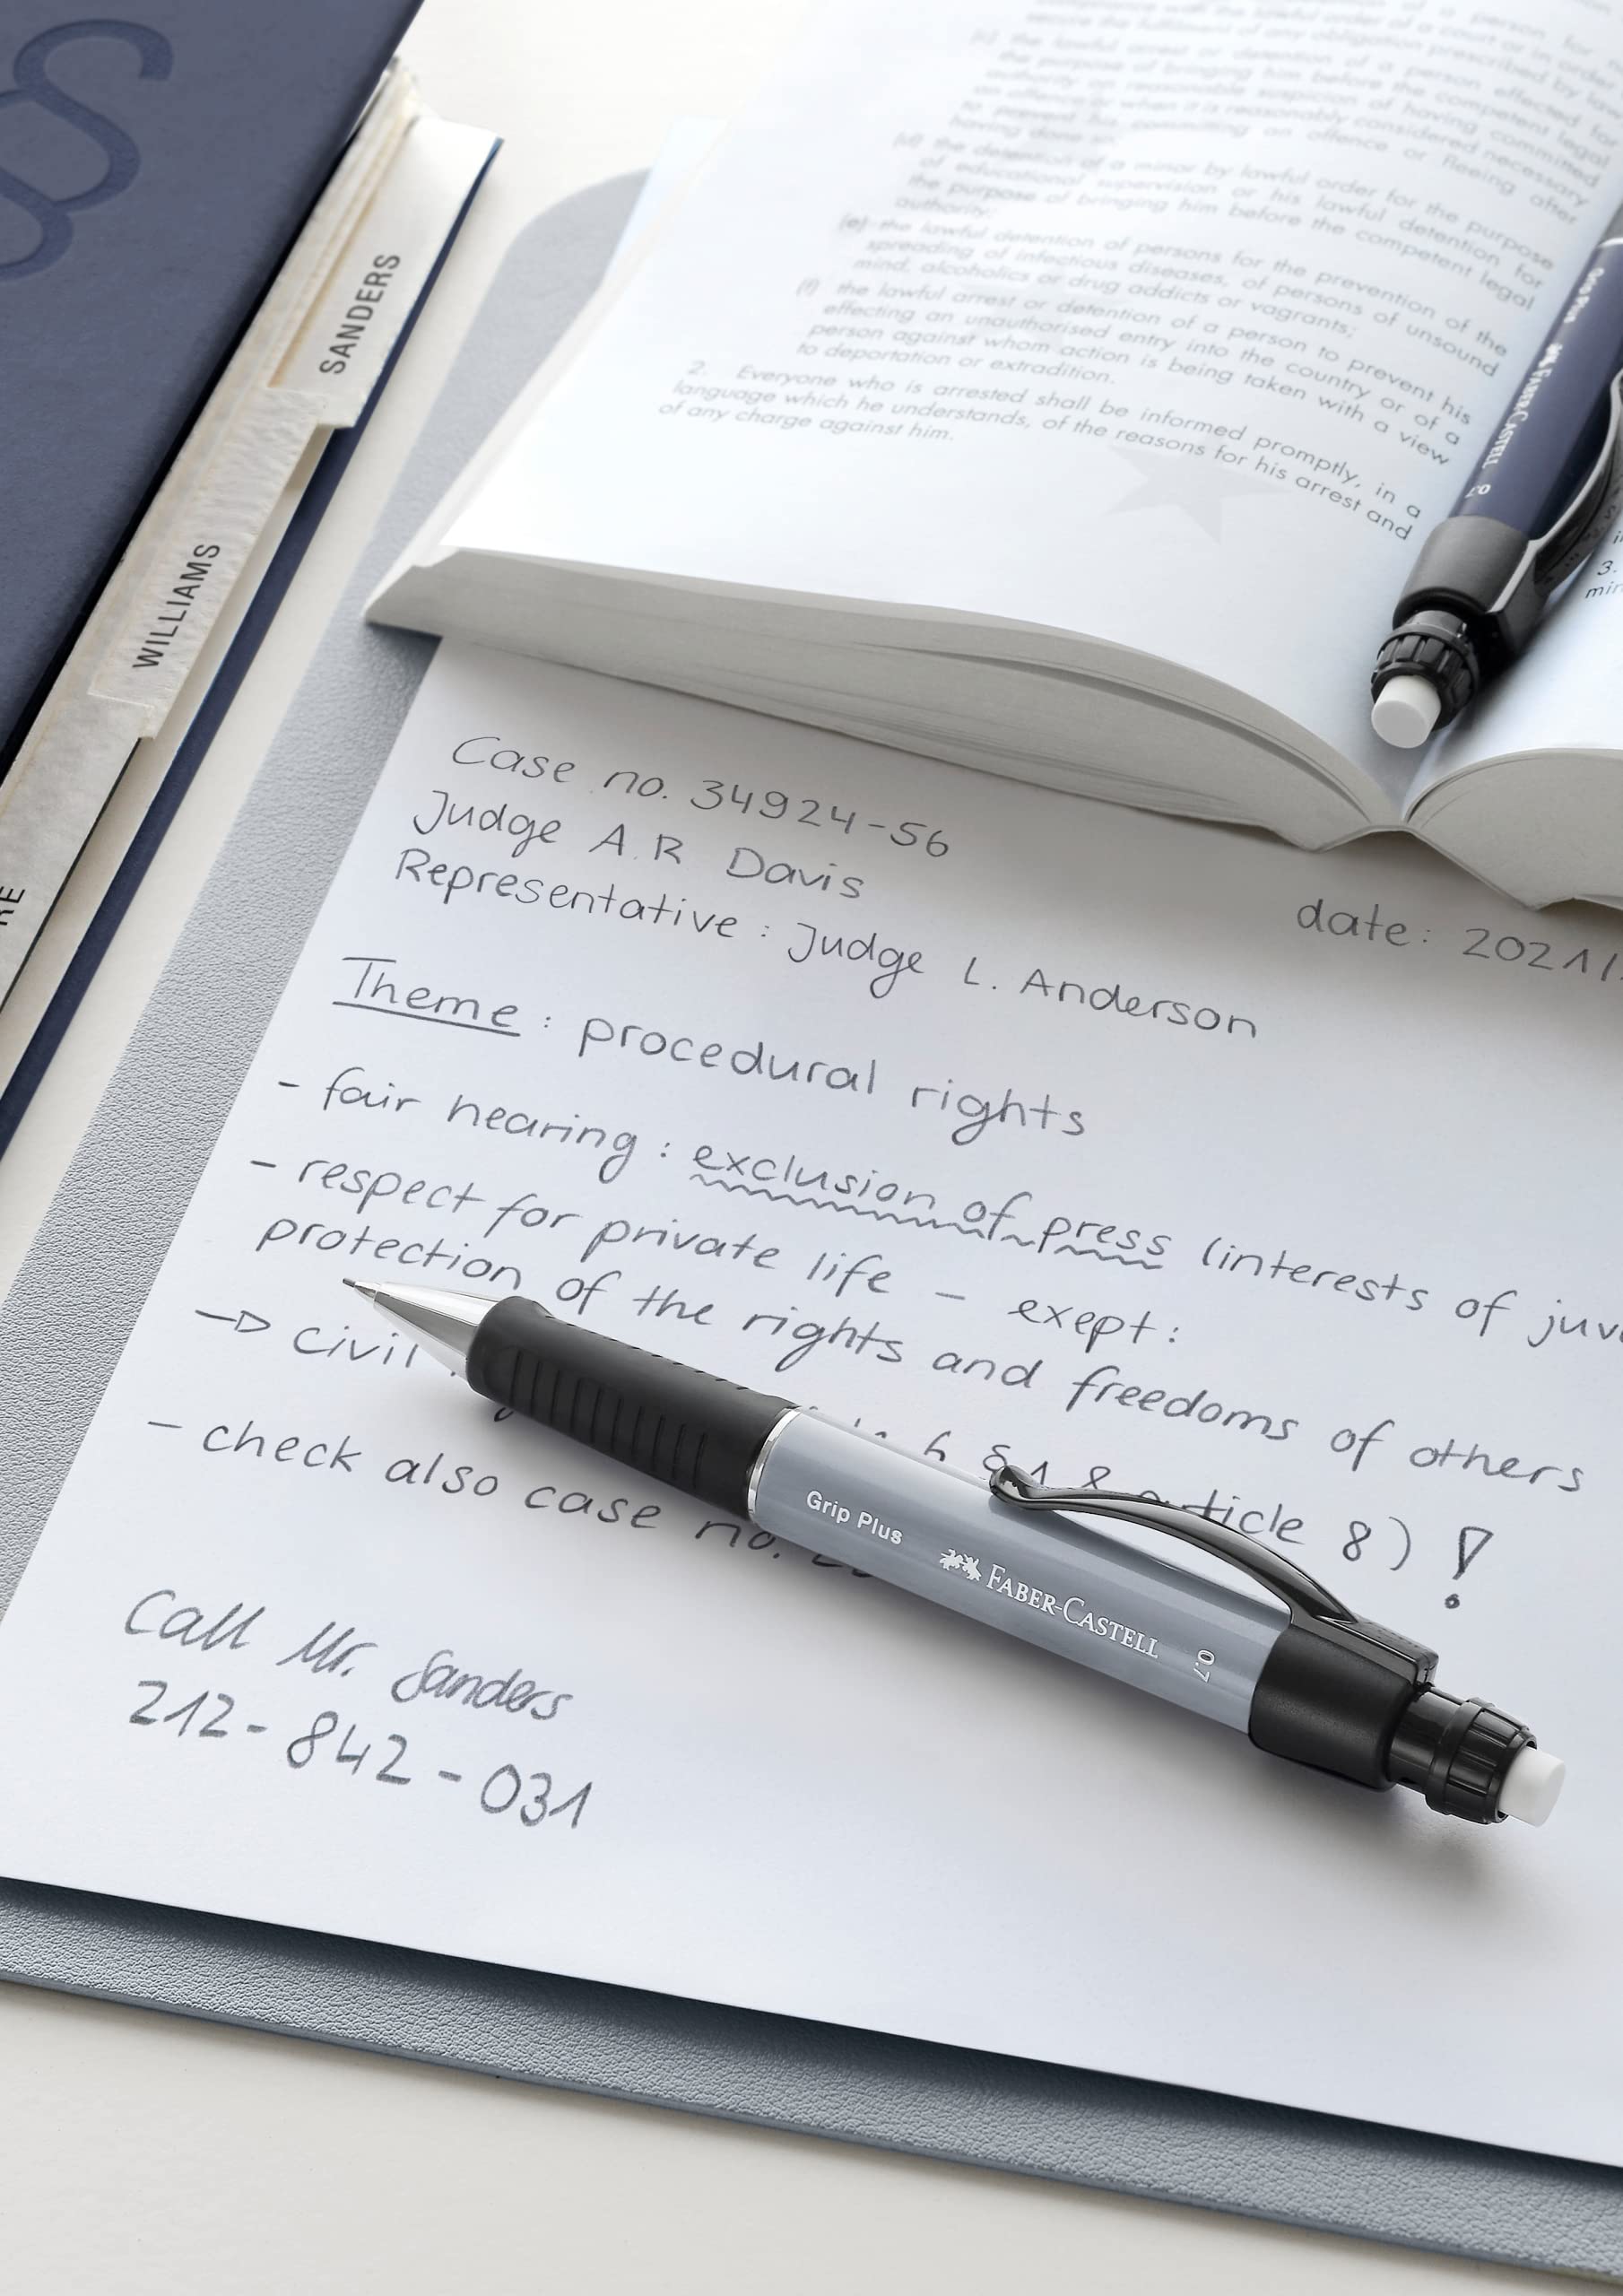 SANDERS
WILLIAMS
the lawful arrest or detention of a person effected for
the purpose of bringing him before the competent legal
authority on reasonable suspicion of having committed
an offence or when it is reasonably considered necessary
to prevent his committing an offence or fleeing after
having done so;
(d) the detention of a minor by lawful order for the purpose
of educational supervision or his lawful detention for
the purpose of bringing him before the competent legal
authority;
(e) the lawful detention of persons for the prevention of the
spreading of infectious diseases, of persons of unsound
mind, alcoholics or drug addicts or vagrants;
(f) the lawful arrest or detention of a person to prevent his
effecting an unauthorised entry into the country or of a
person against whom action is being taken with a view
to deportation or extradition.
2. Everyone who is arrested shall be informed promptly, in a
language which he understands, of the reasons for his arrest and
of any charge against him.
Grip Plus FABER-CASTELL 0.7
3.
Case no. 34924-56
Judge A.R Davis
Representative : Judge L. Anderson
date: 2021/
Theme : procedural rights
- fair hearing : exclusion of press (interests of juv
- respect for private life - exept:
protection of the rights and freedoms of others
→ civil 6 § 1 & article 8) !
- check also case no.
Call Mr. Sanders
212-842-031
Grip Plus FABER-CASTELL 0.7